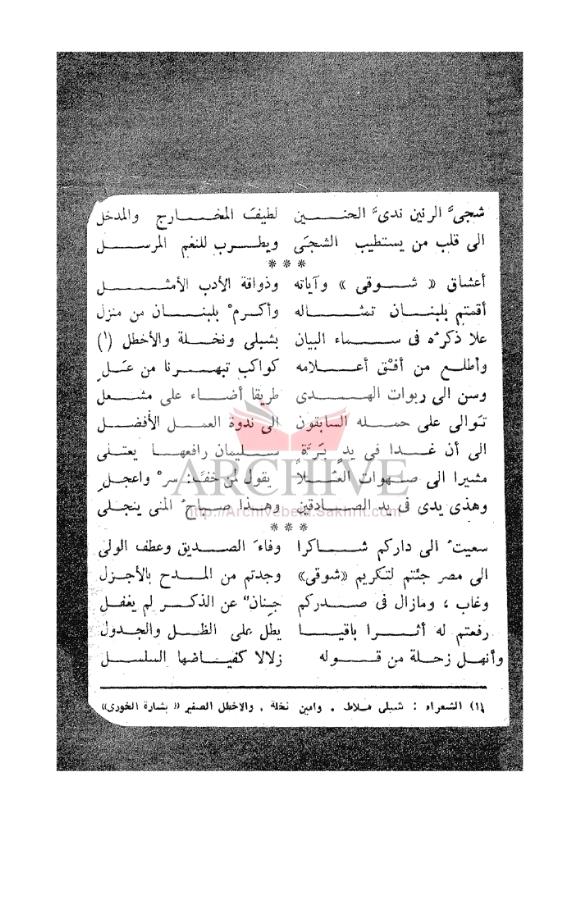 شجىَّ الرنين ندىَّ الحنــــين لطيفَ المخــارج والمدخل
الى قلب من يستطيب الشجَى ويطــرب للنغم المرســــل
* * *
أعشاق « شـــوقى » وآياته وذواقة الأدب الأمثــــــل
أقمتم بلبنــان تمثــــاله وأكرمْ بلبنــان من منزل
علا ذكرُه فى ســـماء البيان بشبلى ونخــلة والأخطل (١)
وأطلع من أفـْق أعـــلامه كواكب تبهــرنا من عَــلِ
وسن الى ربوات الهـــدى طريقا أضــاء على مشــعل
تَوالى على حمــله السابقون الى ندوة العمــل الأفضــل
الى أن غــدا فى يدٍ بَرَّةٍ ســليمان رافعهــا يعتــلى
مشيرا الى صهوات العُــلا يقول لمن خفَّ: سرْ واعجلِ
وهذى يدى فى يد الصــادقين وهــذا صباحُ المنى ينجلى
ARCHIVE
http://Archivebeta.Sakhrit.com
* * *
سعيتُ الى داركم شــاكرا وفاءَ الصــديق وعطف الولى
الى مصر جئتم لتكريم «شوقى» وجدتم من المــدح بالأجزل
وغاب ، ومازال فى صــدركم جِنانٌ عن الذكــر لم يغفل
رفعتم له أثــرا باقيــا يطل على الظــل والجدول
وأنهــل زحلة من قــوله زلالا كفيــاضها السلسل
(١) الشعراء : شبلى ملاط . وامين نخلة . والاخطل الصغير « بشارة الخورى»